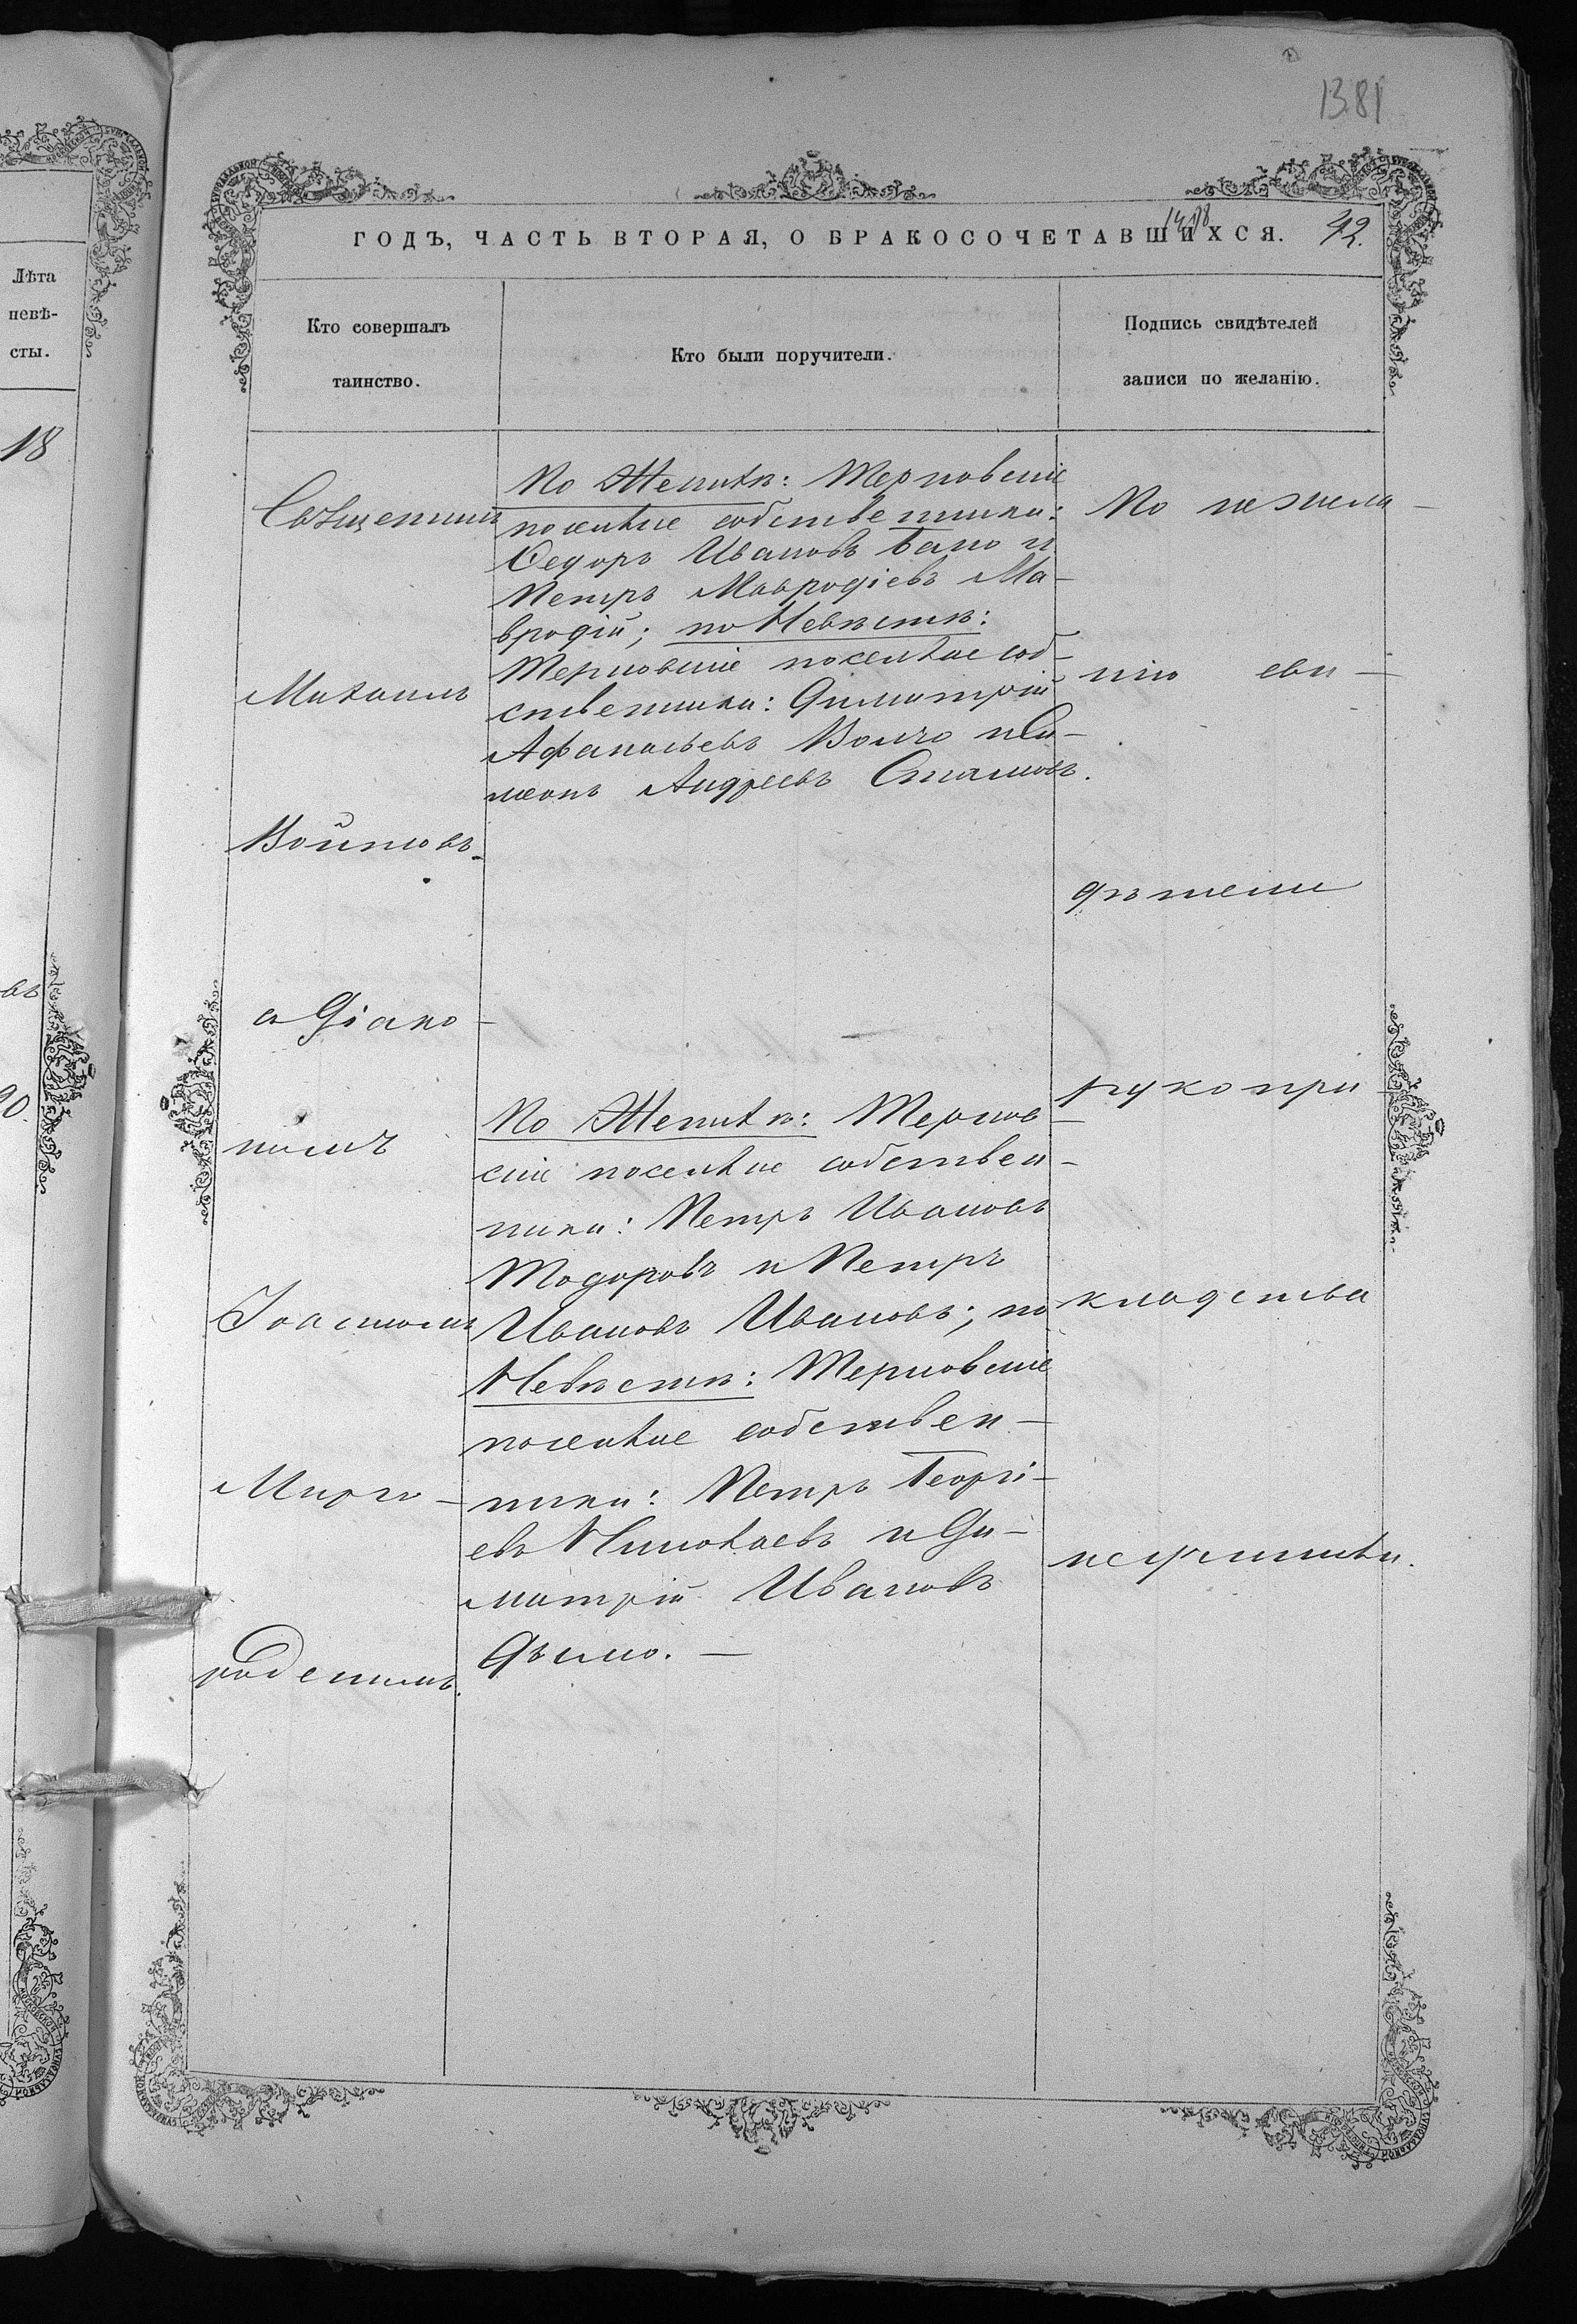 1381
1418
ГОДЪ, ЧАСТЬ ВТОРАЯ, О БРАКОСОЧЕТАВШИХСЯ.
42.
Лѣта
невѣ-
сты.
18
Кто совершалъ
таинство.
Кто были поручители.
Подпись свидѣтелей
записи по желанію.
Священникъ
Михаилъ
Войновъ
съ Діако-
номъ
Мирго-
родскимъ.
По Женихѣ: Терновскіе
поселяне собственники:
Ѳедоръ Ивановъ Гано и
Петръ Мавродіевъ Ма-
вродій; по Невѣстѣ:
Терновскіе поселяне соб-
ственники: Димитрій
Афанасьевъ Волчо и Си-
меонъ Андреевъ Стамовъ.
По Женихѣ: Тернов-
скіе поселяне собствен-
ники: Петръ Ивановъ
Тодоровъ и Петръ
Ивановъ Ивановъ; по
Невѣстѣ: Терновскіе
поселяне собствен-
ники: Петръ Георгі-
евъ Николаевъ и Ди-
митрій Ивановъ
По нежела-
нію сви-
дѣтели
рукопри-
кладства
не учинили.